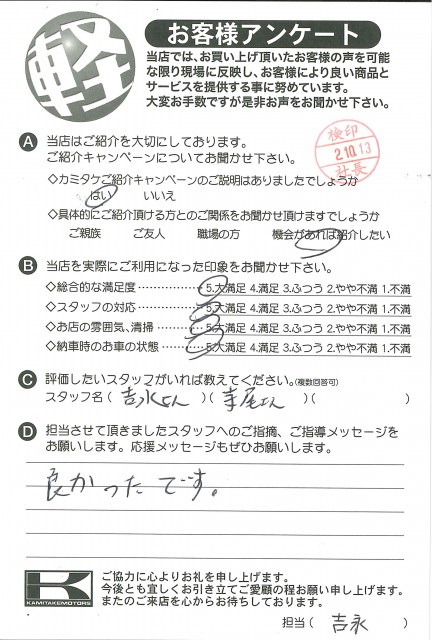 軽
お客様アンケート
当店では、お買い上げ頂いたお客様の声を可能
な限り現場に反映し、お客様により良い商品と
サービスを提供する事に努めています。
大変お手数ですが是非お声をお聞かせ下さい。
検印
2.10.13
社長
A 当店はご紹介を大切にしております。
ご紹介キャンペーンについてお聞かせ下さい。
◇カミタケご紹介キャンペーンのご説明はありましたでしょうか
はい いいえ
◇具体的にご紹介頂ける方とのご関係をお聞かせ頂けますでしょうか
ご親族 ご友人 職場の方 機会があれば紹介したい
B 当店を実際にご利用になった印象をお聞かせ下さい。
◇総合的な満足度 5.大満足 4.満足 3.ふつう 2.やや不満 1.不満
◇スタッフの対応 5.大満足 4.満足 3.ふつう 2.やや不満 1.不満
◇お店の雰囲気、清掃 5.大満足 4.満足 3.ふつう 2.やや不満 1.不満
◇納車時のお車の状態 5.大満足 4.満足 3.ふつう 2.やや不満 1.不満
C 評価したいスタッフがいれば教えてください。(複数回答可)
スタッフ名 ( 吉永さん ) ( 寺尾さん ) ( )
D 担当させて頂きましたスタッフへのご指摘、ご指導メッセージを
お願いします。応援メッセージもぜひお願いします。
良かったです。
K
KAMITAKEMOTORS
ご協力に心よりお礼を申し上げます。
今後とも宜しくお引き立てご愛顧の程お願い申し上げます。
またのご来店を心からお待ちしております。
担当 ( 吉永 )